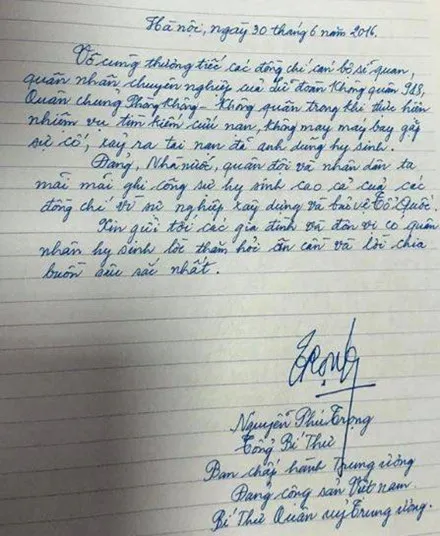 Hà nội, ngày 30 tháng 6 năm 2016.
Vô cùng thương tiếc các đồng chí cán bộ sĩ quan,
quân nhân chuyên nghiệp của lữ đoàn không quân 918,
Quân chủng Phòng không - Không quân trong khi thực hiện
nhiệm vụ tìm kiếm cứu nạn, không may máy bay gặp
sự cố, xảy ra tai nạn đã anh dũng hy sinh.
Đảng, Nhà nước, quân đội và nhân dân ta
mãi mãi ghi công sự hy sinh cao cả của các
đồng chí vì sự nghiệp xây dựng và bảo vệ Tổ Quốc.
Xin gửi tới các gia đình và đơn vị có quân
nhân hy sinh lời thăm hỏi ân cần và lời chia
buồn sâu sắc nhất.
Trọng
Nguyễn Phú Trọng
Tổng Bí Thư
Ban chấp hành Trung ương
Đảng cộng sản Việt nam
Bí Thư Quân uỷ Trung ương.